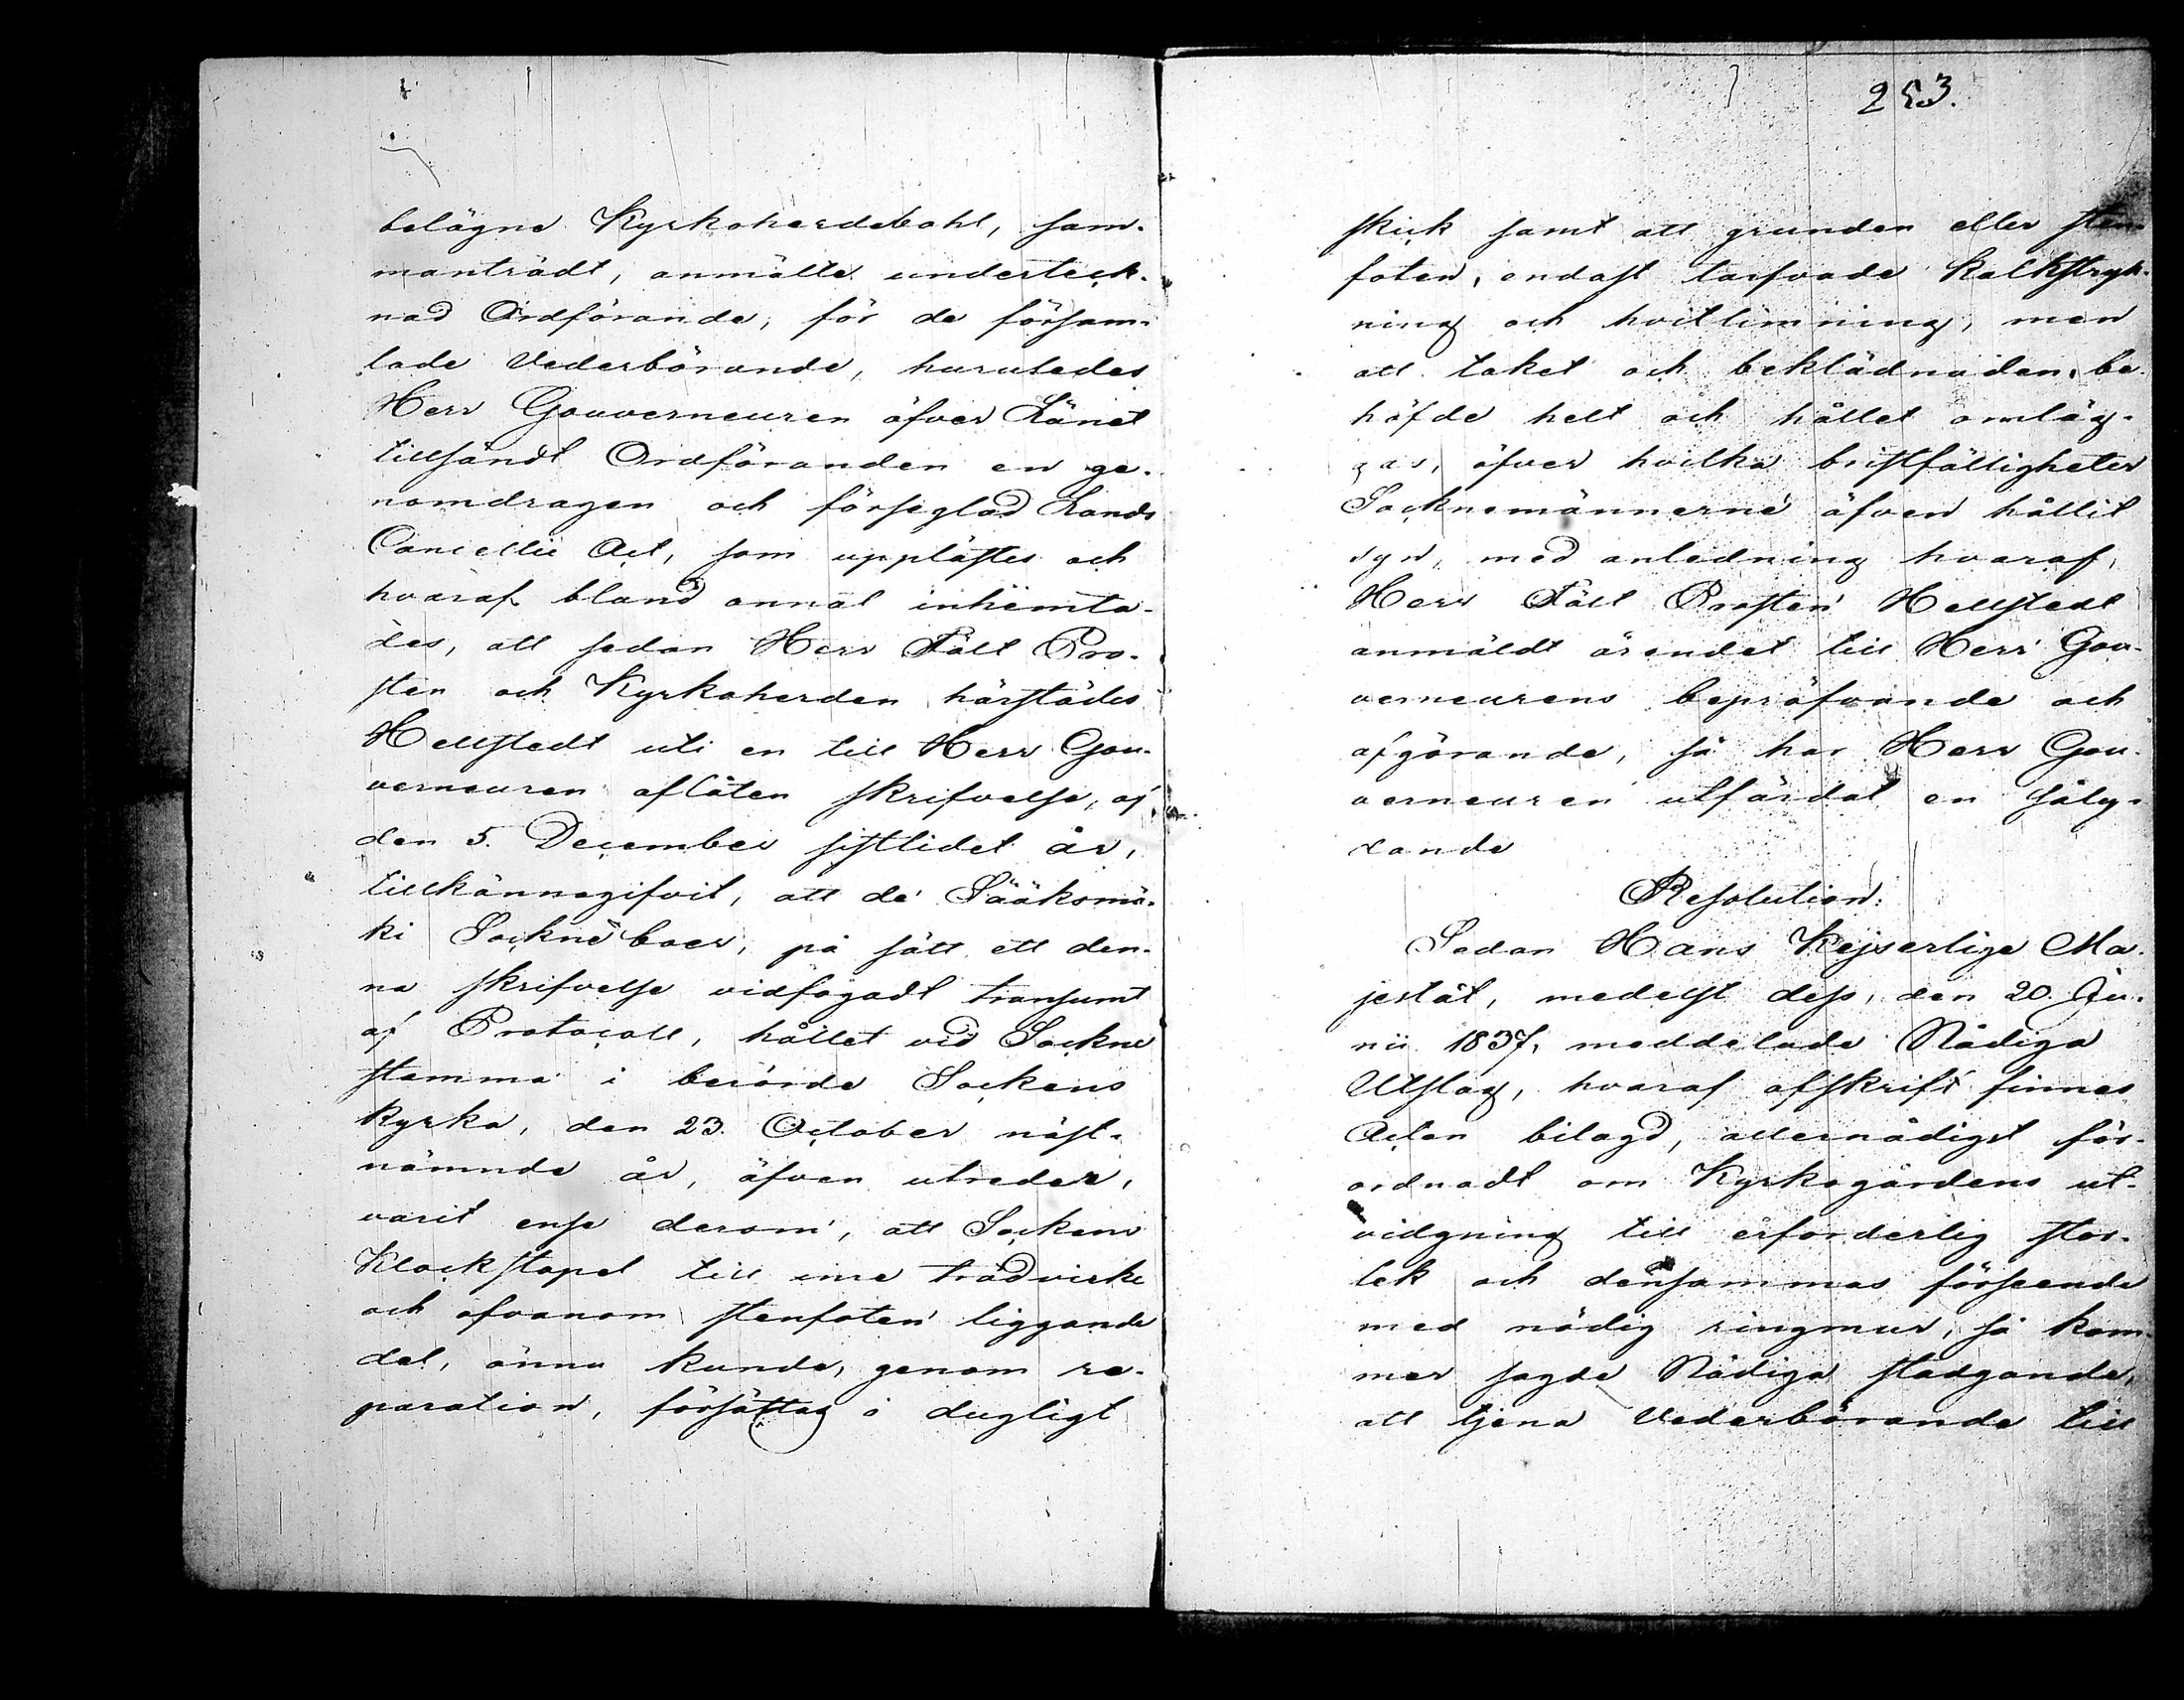 belägne Kyrkoherdebohl, sam-
manträdt, anmälte underteck-
nad Ordförande, för de försam-
lade Vederbörande, huruledes
Herr Gouverneuren öfver Länet
tillsändt Ordföranden en ge-
nomdragen och förseglad Lands
Cancellie Act, som upplästes och
hvaraf bland annat inhemta-
des, att sedan Herr Fält Pro-
sten och Kyrkoherden härstädes
Hellstedt uti en till Herr Gou-
verneuren aflåten skrifvelse, af
den 5. December sistlidet år,
tillkännagifvit, att de Sääksmä-
ki Sockneboer, på sätt ett den-
na skrifvelse vidfogadt transumt
af Protocoll, hållet vid Sockne
stamma i berörde Sockens
kyrka, den 23. October näst-
nämnde år, äfven utreder,
varit ense derom, att Sockens
Klockstapel till inre trädvirke
och ofvanom stenfoten liggande
del, ännu kunde, genom re-
paration, försättas i dugligt
253.
skick samt att grunden eller sten-
foten, endast tarfvade kalkstryk-
ning och hvitlimning, men
att taket och beklädnaden be-
höfde helt och hållet omläg-
gas, öfver hvilka bristfälligheter
Socknemännerne äfven hållit
syn, med anledning hvaraf,
Herr Fält Prosten Hellstedt
anmäldt ärendet till Herr Gou-
verneurens bepröfvande och
afgörande, så har Herr Gou-
verneuren utfärdat en såly-
dande
Resolution:
Sedan Hans Kejserlige Ma-
jestät, medelst dess, den 20. Ju-
nii 1837, meddelade Nådiga
Utslag, hvaraf afskrift finnes
Acten bilagd, allernådigst för-
ordnadt om Kyrkogårdens ut-
vidgning till erforderlig stor-
lek och densammas förseende
med nödig ringmur, så kom-
mer sagde Nådiga stadgande,
att tjena Vederbörande till